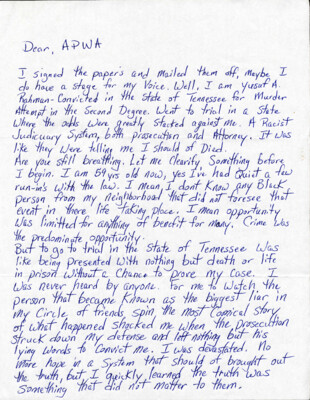 Dear, APWA
I signed the paper's and mailed them off, maybe I
do have a stage for my Voice. Well, I am Yusuf A.
Rahman-Convicted in the State of Tennessee for Murder
Attempt in the Second Degree. Went to trial in a State
where the odds were greatly stacted against me. A Racist
Judicuary System, both prosecution and Attorney. It was
like they were telling me I should of Died.
Are you still breathing. Let me clearity Something before
I begin. I am 59 yrs old now, yes I've had Quiet a few
run-in's with the law. I mean, I don't Know any Black
person from my neighborhood that did not foresee that
event in there life taking place. I mean opportunity
was limited for anything of benefit for many. Crime was
the predominate opportunity.
But to go to trial in the State of Tennessee was
like being presented with nothing but death or life
in prison without a Chance to prove my case. I
was never heard by anyone. For me to watch the
person that became Known as the biggest liar in
my Circle of friends, spin the most Comical story
of what happened shocked me when the prosecution
struck down my defense and left nothing but his
lying words to Convict me. I was devastated. No
more hope in a System that should of brought out
the truth, but I quickly learned the truth was
something that did not matter to them.